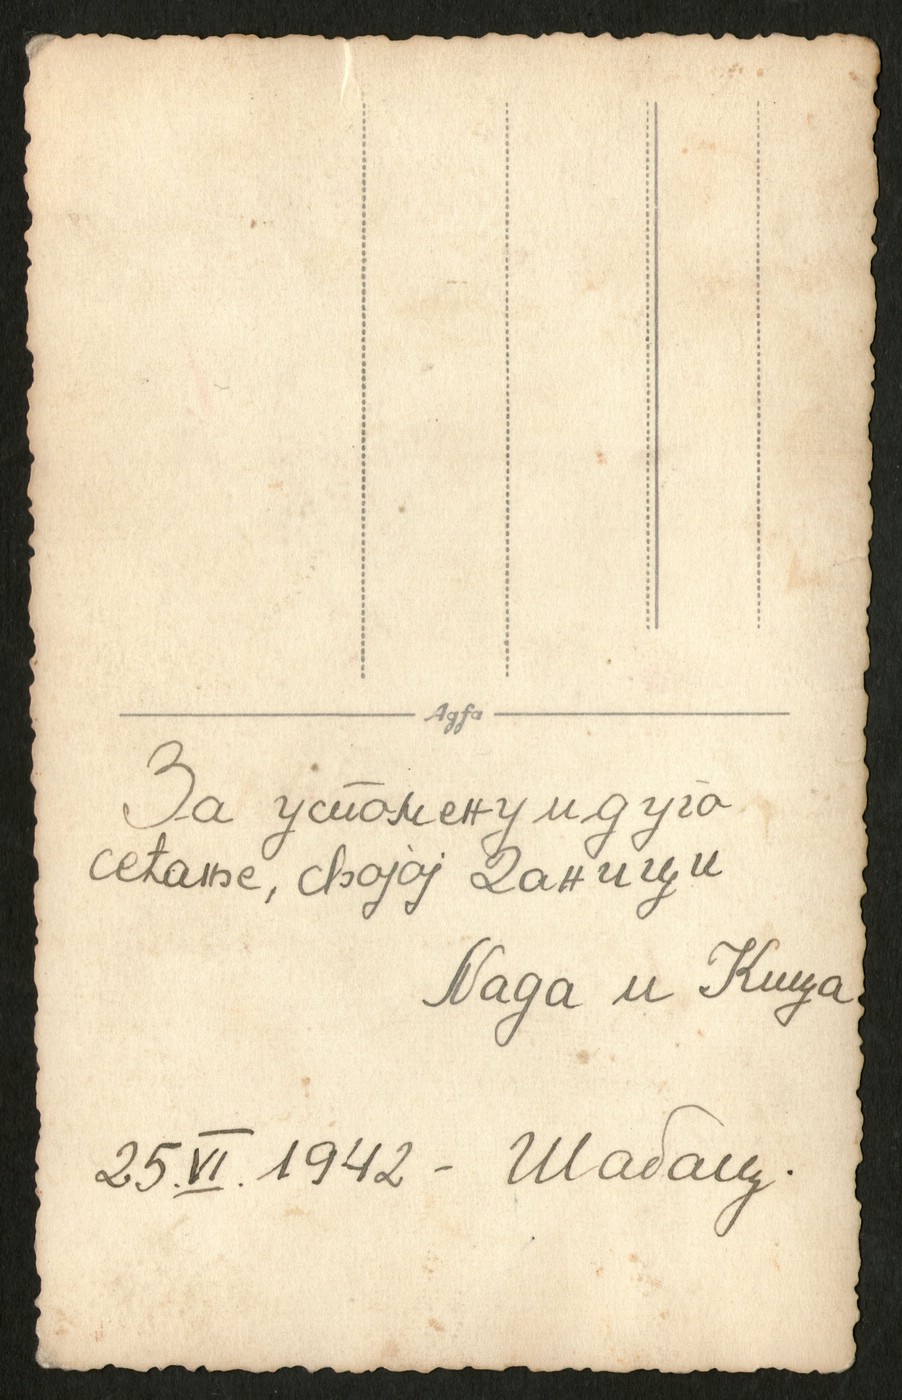 Agfa
За успомену и дуго
сећање, својој Даници
Нада и Кица
25.VI.1942 - Шабац.